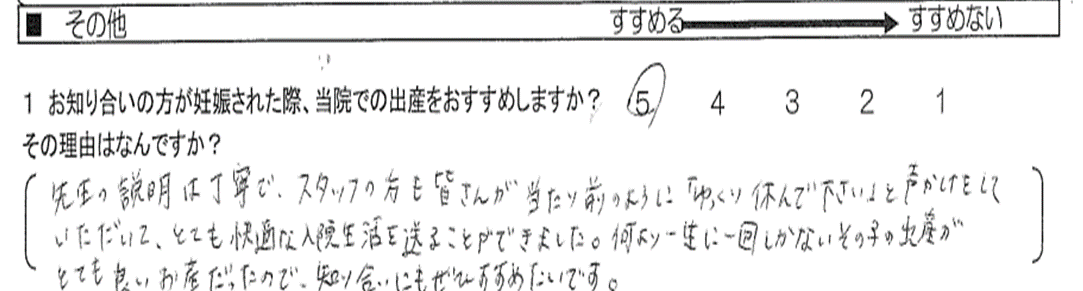 ■ その他 すすめる → すすめない
1 お知り合いの方が妊娠された際、当院での出産をおすすめしますか？ 5 4 3 2 1
その理由はなんですか？
先生の説明は丁寧で、スタッフの方も皆さんが当たり前のように「ゆっくり休んで下さい」と声かけをして
いただいて、とても快適な入院生活を送ることができました。何より一生に一回しかないその子の出産が
とても良いお産だったので、知り合いにもぜひすすめたいです。